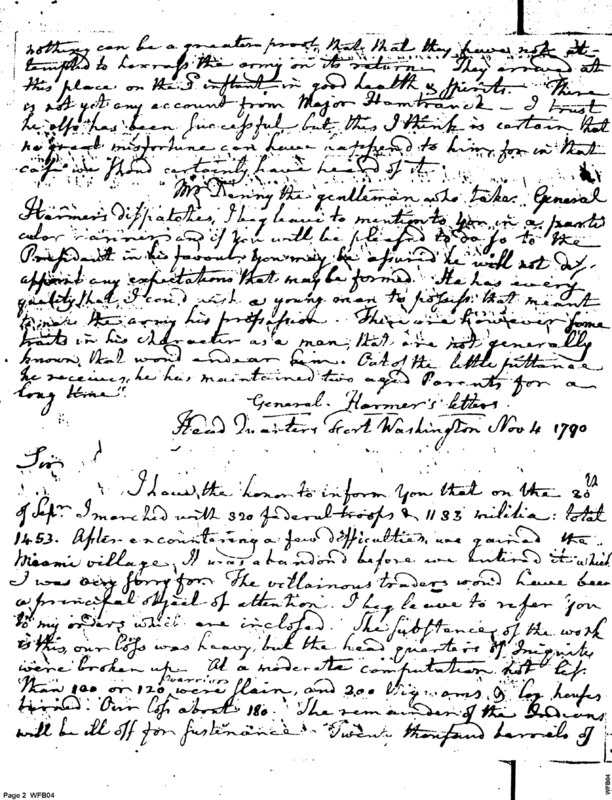 nothing can be a greater proof, that that they have not at-
tempted to harrass the army on its return. They arrived at
this place on the 3 instant in good health & spirits. There
is not yet any account from Major Hamtranck – I trust
he also has been Successful but this I think is certain that
no great misfortune can have happened to him, for in that
case we shou'd certainly have heard of it.
Mr Denny the gentleman who takes General
Harmer's dispatches, I beg leave to mention to you in a parti
cular manner and if you will be pleased to do so to the
President in his favour you may be assured he will not dis-
appoint any expectations that may be formed. He has every
quality that I coud wish a young man to possess that meant
to make the army his profession. There are however some
traits in his character as a man, that are not generally
known, that woud endear him. Out of the little pittance
he receives, he has maintained two aged Parents for a
long time".
General Harmer's letters.
Head Quarters Fort Washington Nov 4 1790
Sir
I have the honor to inform you that on the 30th
of Sepr. I marched with 320 federal troops & 1133 militia: total
1453. After encountering a few difficulties, we gained the
Miami village. It was abandond before we entered it which
I was very sorry for. The villainous traders woud have been
a principal object of attention. I beg leave to refer you
to my orders which are inclosed. The substance of the work
is this, our loss was heavy, but the head quarters of Iniquity
were broken up. At a moderate computation not less
than 100 or 120 warriors were slain, and 200 & log houses
burned. Our loss about 180. The remainder of the Indians
will be ill off for sustenance. Twenty thousand barrels of
Page 2 WFB04
WFB04